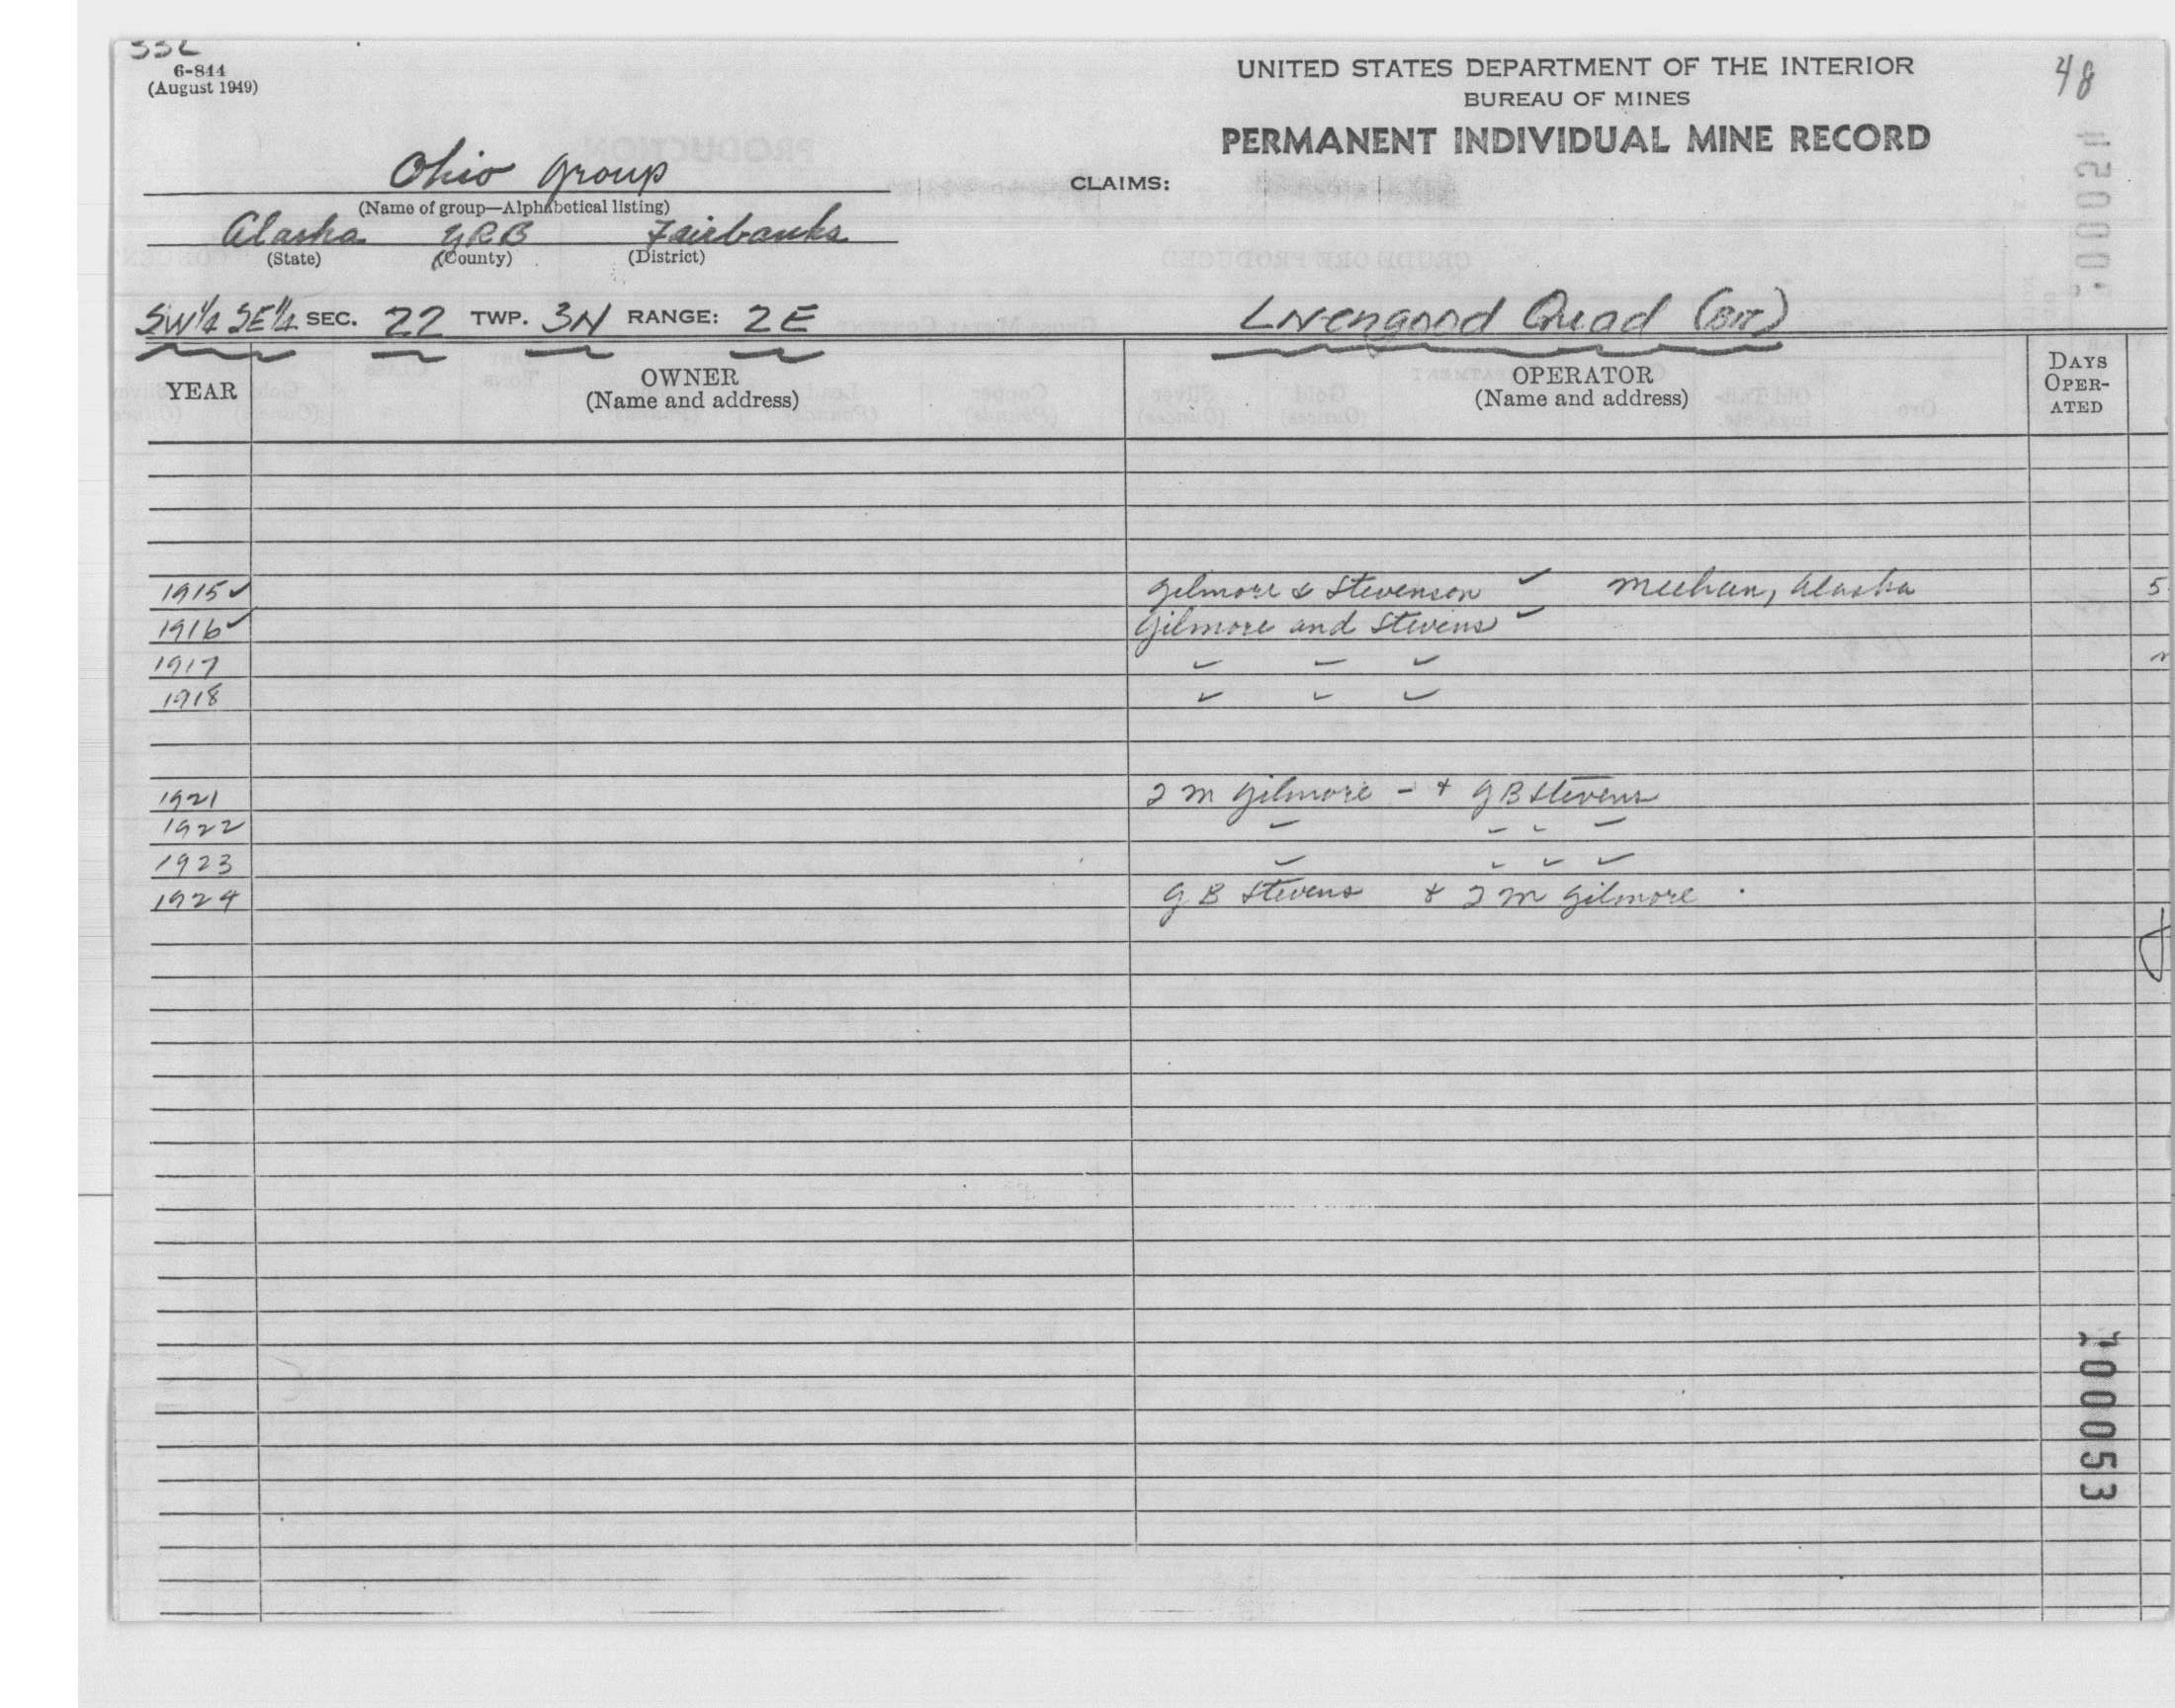 6-844
(August 1949)
48
UNITED STATES DEPARTMENT OF THE INTERIOR
BUREAU OF MINES
PERMANENT INDIVIDUAL MINE RECORD
Ohio Group
CLAIMS:
(Name of group—Alphabetical listing)
Alaska YRB Fairbanks
(State) (County) (District)
SW¼ SE¼ SEC. 22 TWP. 3N RANGE: 2E Livengood Quad
YEAR OWNER (Name and address) OPERATOR (Name and address) DAYS OPER-ATED
1915 ✓ Gilmore & Stevenson ✓ Meehan, Alaska 5
1916 ✓ Gilmore and Stevens ✓
1917 ✓ – ✓
1918 ✓ ✓ ✓
1921 T M Gilmore - + G B Stevens
1922
1923
1924 G B Stevens & T M Gilmore .
200053